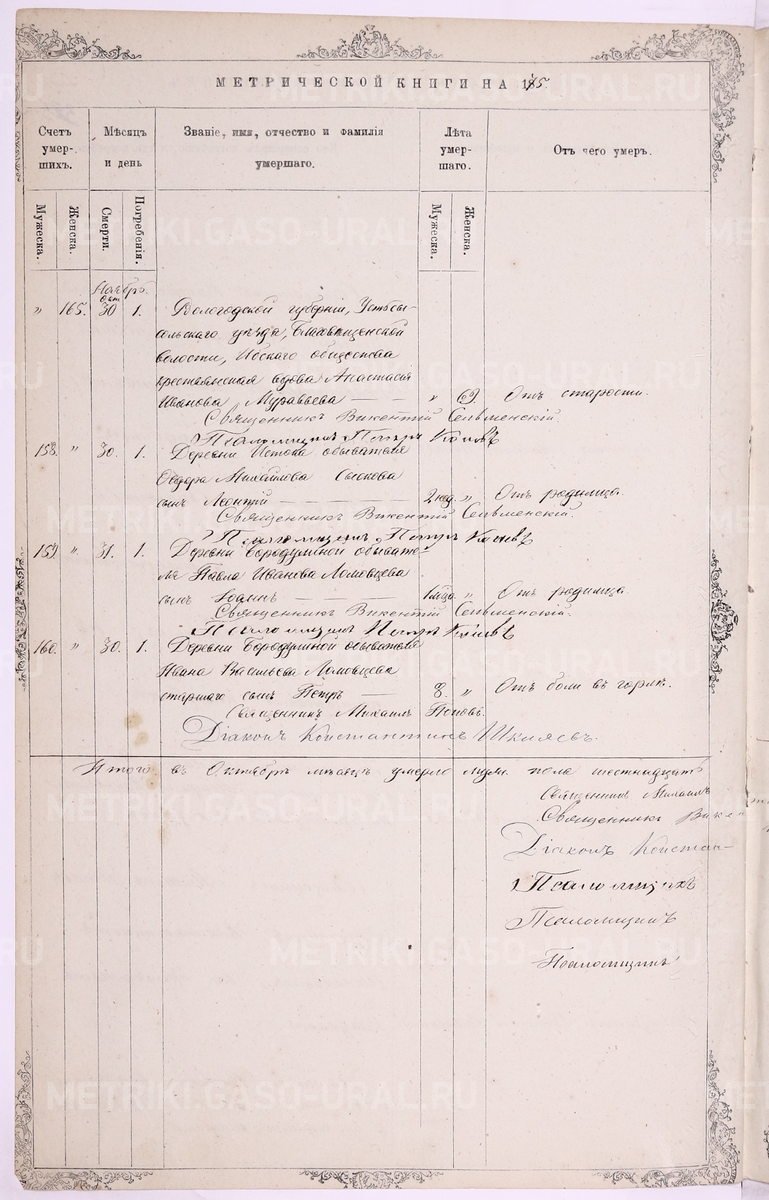 МЕТРИЧЕСКОЙ КНИГИ НА 1885.
Счетъ умер-шихъ.
Мѣсяцъ и день
Званіе, имя, отчество и фамилія умершаго.
Лѣта умер-шаго.
Отъ чего умеръ.
Мужеска.
Женска.
Смерти.
Погребенія.
Мужеска.
Женска.
Ноябрь.
Окт.
" 165. 30 1. Вологодской губерніи, Устьсы-
сольскаго уѣзда,
волости, Ибскаго общества
крестьянская вдова Анастасія
Иванова Муравьева — " 69 Отъ старости.
Священникъ Викентій Сельменскій.
Псаломщикъ Петръ
158. " 30. 1. Деревни Истока обывателя
Ѳедора Михайлова Сыскова
сынъ Леонтій — 2 нед. " Отъ родимца.
Священникъ Викентій Сельменскій.
Псаломщикъ Петръ
159. " 31. 1. Деревни Бородулиной обывате-
ля Павла Иванова Ломовцева
сынъ Іоаннъ — " Отъ родимца.
Священникъ Викентій Сельменскій.
Псаломщикъ Петръ
160. " 30. 1. Деревни Бородулиной обывателя
Ивана Васильева Ломовцева
старшаго сынъ Петръ — 8. " Отъ боли въ горлѣ.
Священникъ Михаилъ Поповъ.
Діаконъ Константинъ Шкляевъ.
Итого въ Октябрѣ мѣсяцѣ умерло муж. пола шестнадцать
Священникъ Михаилъ
Священникъ Вике
Діаконъ Констан-
Псаломщикъ
Псаломщикъ
Псаломщикъ
METRIKI.GASO-URAL.RU